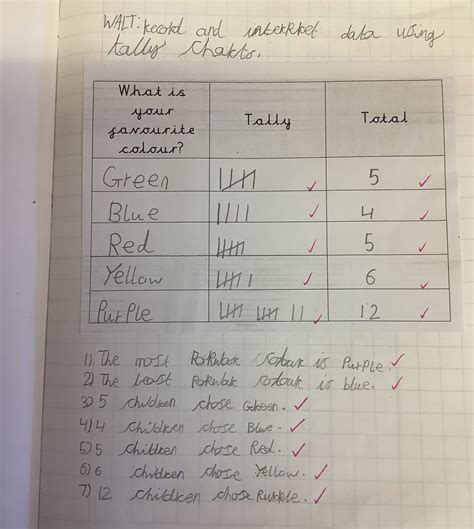 WALT: Record and interpret data using
tally charts.
What is your favourite colour? Tally Total
Green 5
Blue 4
Red 5
Yellow 6
Purple 12
1) The most Popular colour is Purple.
2) The least Popular colour is blue.
3) 5 children chose Green.
4) 4 children chose Blue.
5) 5 children chose Red.
6) 6 children chose Yellow.
7) 12 children chose Purple.